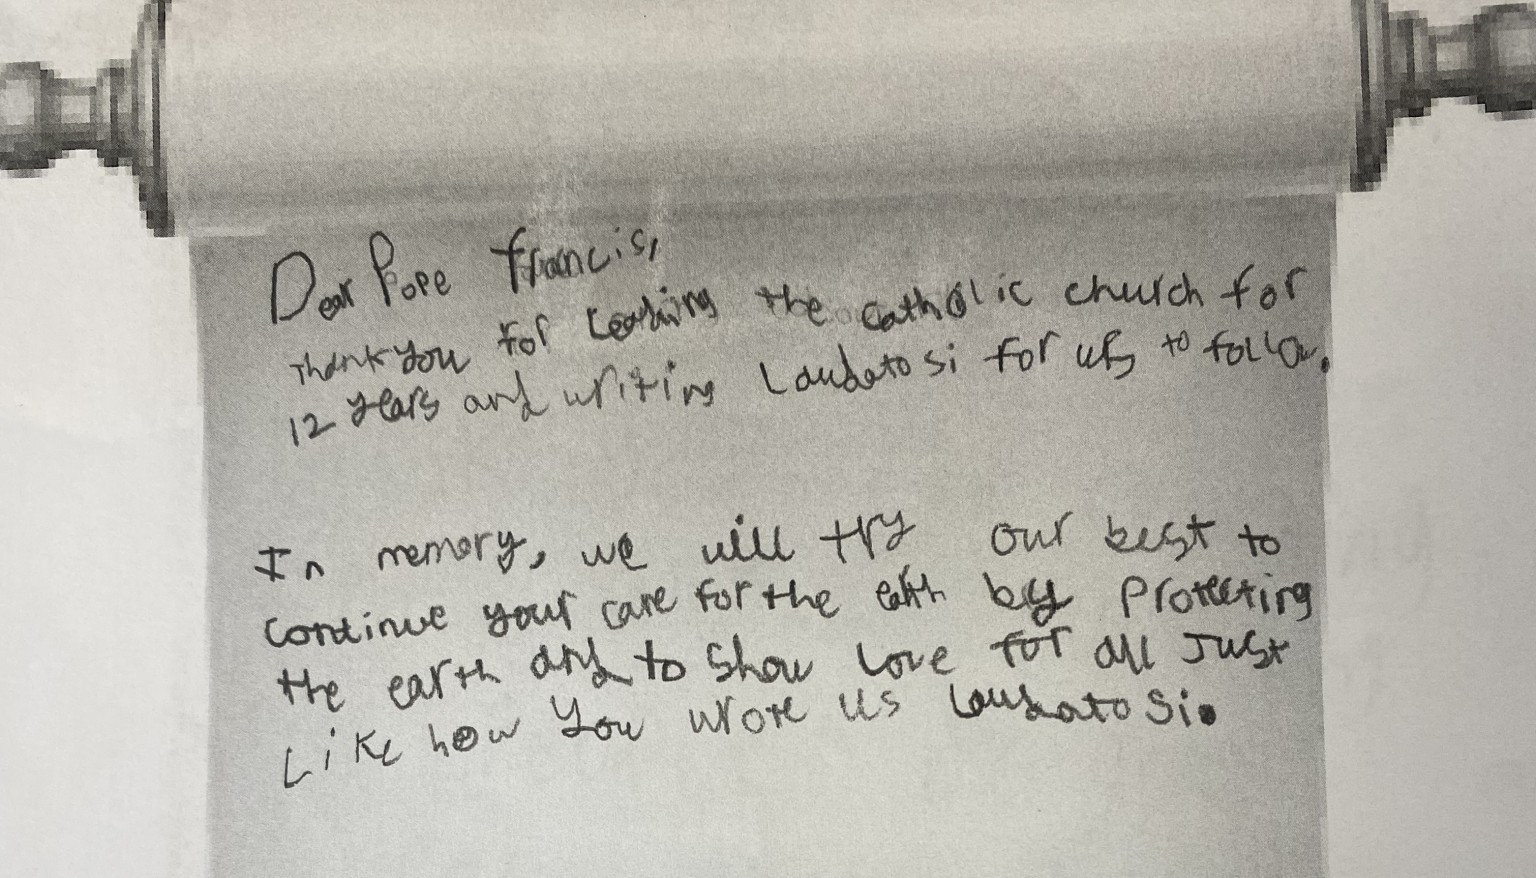 Dear Pope francis,
Thank you for Leading the catholic church for
12 years and writing Laudato si for us to follow.
In memory, we will try our best to
continue your care for the earth by protecting
the earth and to show love for all Just
Like how you wrote us Laudato Si.